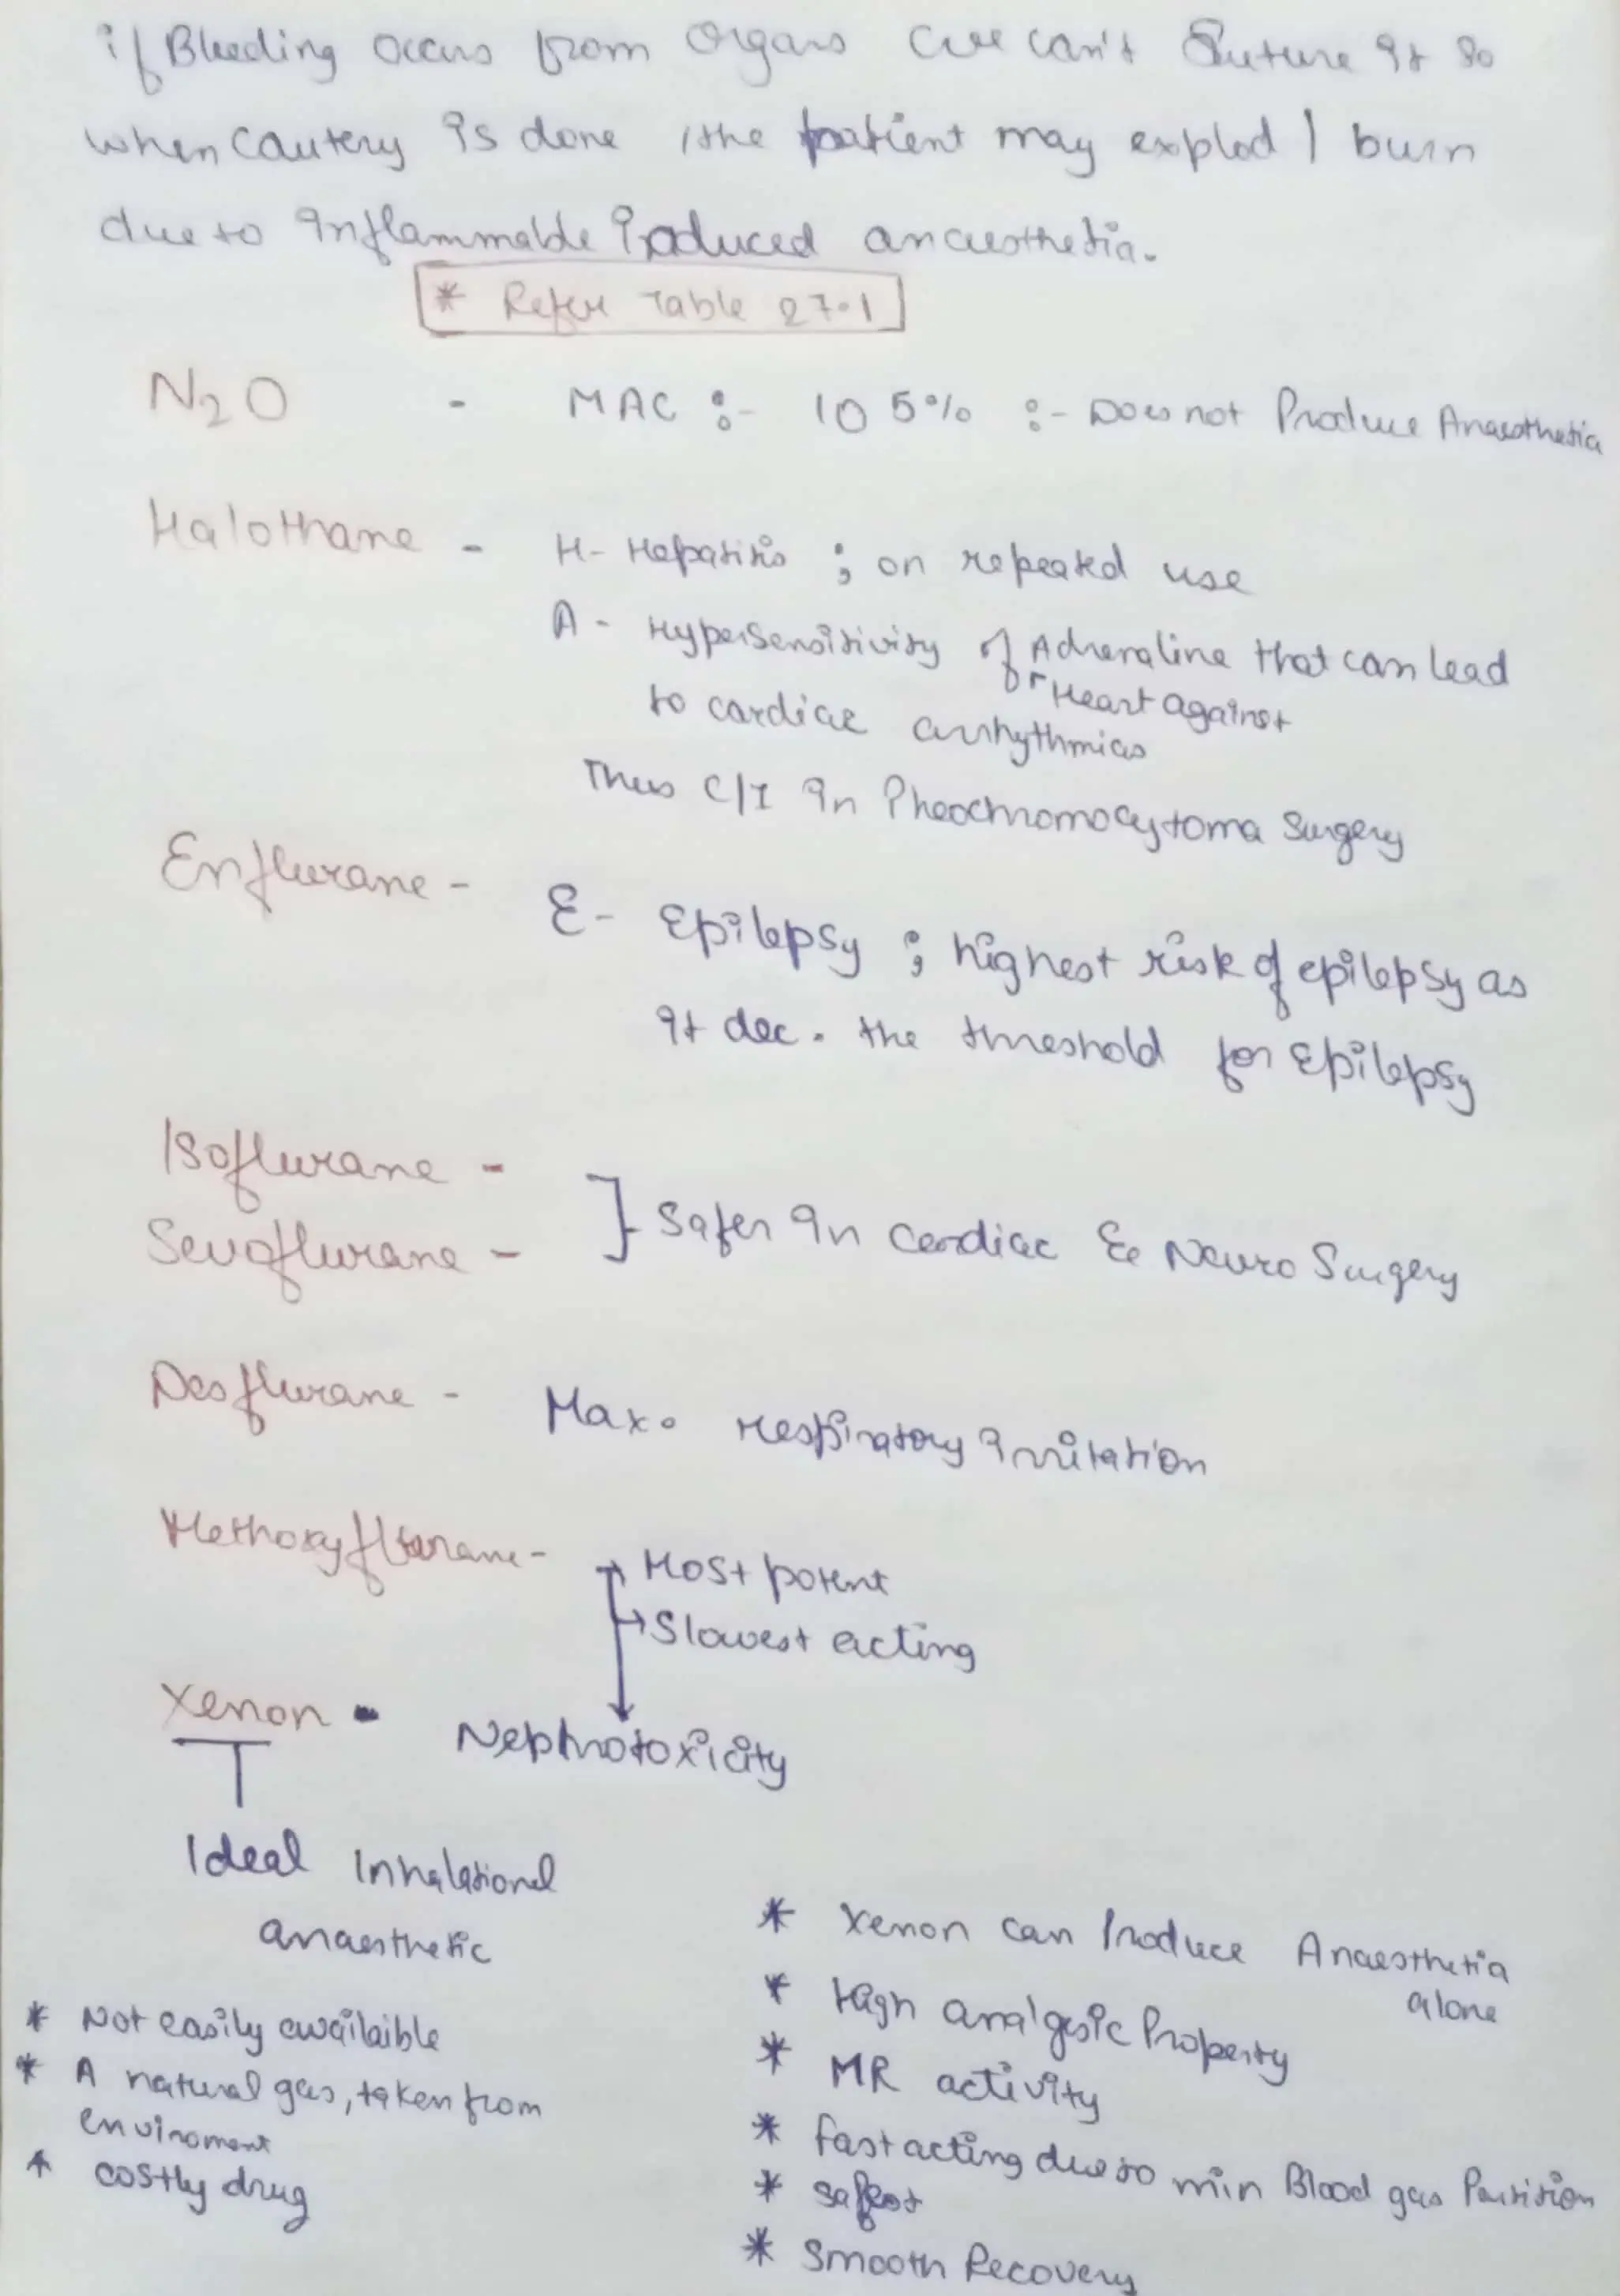 if Bleeding occurs from organs we can't Suture it so
when cautery is done , the patient may explod / burn
due to inflammable induced anaesthetia.
* Refer Table 27.1
N2O - MAC :- 105% :- Does not Produce Anaesthetia
Halothane - H- Hepatitis ; on repeated use
A - Hypersensitivity of Adrenaline that can lead
or Heart against
to cardiac arrhythmias
Thus C/I in Pheochromocytoma Surgery
Enflurane - E- Epilepsy ; highest risk of epilepsy as
it dec. the threshold for Epilepsy
Isoflurane -
Sevoflurane - } Safer in cardiac & Neuro Surgery
Desflurane - Max. respiratory irritation
Methoxyflurane - → Most potent
→ Slowest acting
Xenon - Nephrotoxicity
Ideal Inhalational
anaesthetic
* Not easily availaible
* A natural gas, taken from
enviroment
* costly drug
* Xenon can Produce Anaesthetia
alone
* High analgesic Property
* MR activity
* fast acting due to min Blood gas Partition
* safest
* Smooth Recovery